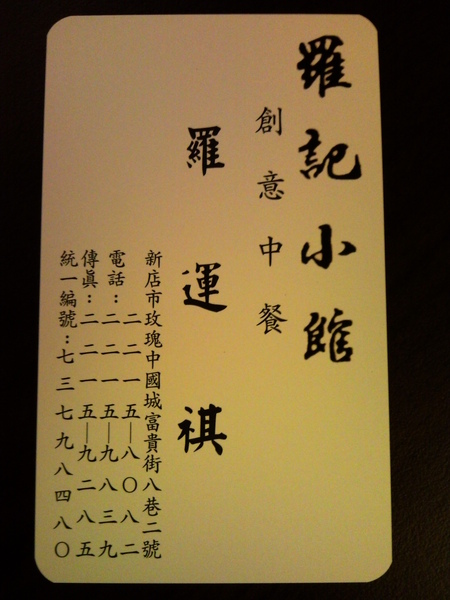 羅記小館
創意中餐
羅運祺
新店市玫瑰中國城富貴街八巷二號
電話：二二一五—八〇八二
二二一五—九八三九
傳眞：二二一五—九二八五
統一編號：七三七九八四八〇